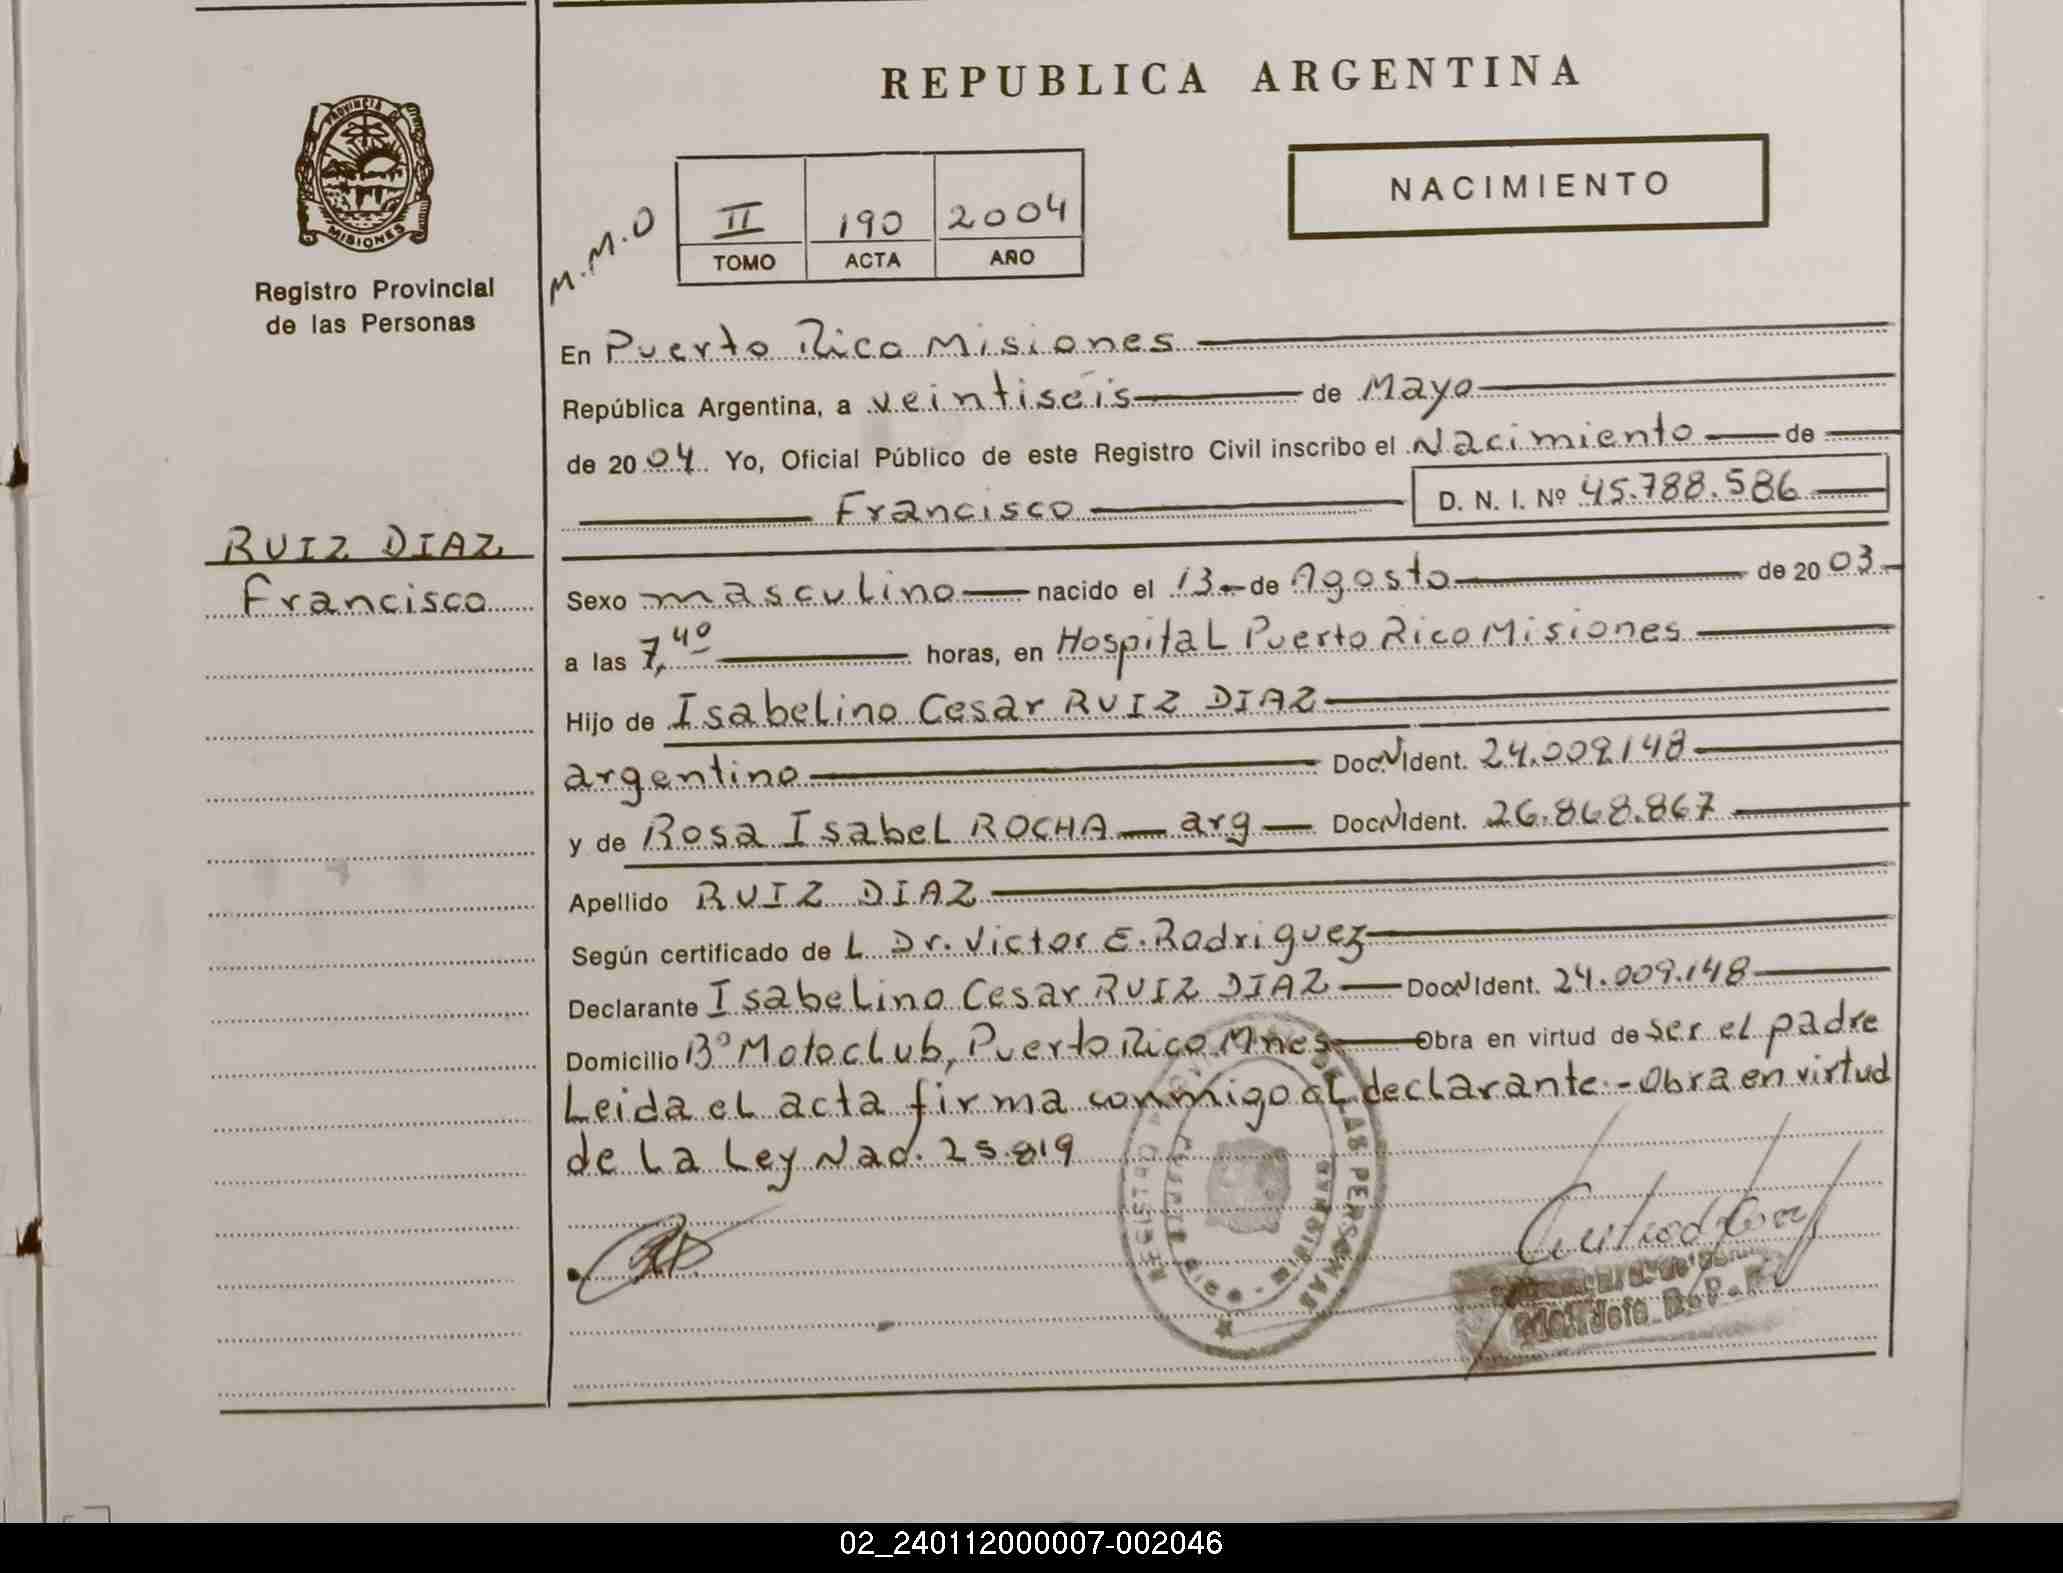 REPUBLICA ARGENTINA
PROVINCIA DE
MISIONES
Registro Provincial
de las Personas
NACIMIENTO
M.M.O
II 190 2004
TOMO ACTA AÑO
En Puerto Rico Misiones
República Argentina, a veintiseis de Mayo
de 2004. Yo, Oficial Público de este Registro Civil inscribo el Nacimiento de
Francisco D. N. I. Nº 45.788.586
RUIZ DIAZ
Francisco
Sexo masculino nacido el 13 de Agosto de 2003
a las 7,40 horas, en Hospital Puerto Rico Misiones
Hijo de Isabelino Cesar RUIZ DIAZ
argentino Doc.N Ident. 24.009.148
y de Rosa Isabel ROCHA arg Doc.N Ident. 26.868.867
Apellido RUIZ DIAZ
Según certificado de L Dr. Victor E. Rodriguez
Declarante Isabelino Cesar RUIZ DIAZ Doc.N Ident. 24.009.148
Domicilio Bº Motoclub, Puerto Rico Mnes Obra en virtud de ser el padre
Leida el acta firma conmigo el declarante.- Obra en virtud
de la Ley Nac. 25.819
REGISTRO DE LAS PERSONAS
PUERTO RICO - MISIONES
R.P.P.
02_240112000007-002046